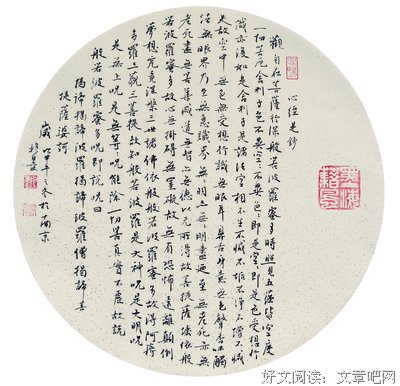 心經
觀自在菩薩行深般若波羅蜜多時照見五蘊皆空度
一切苦厄舍利子色不異空空不異色色即是空空即是色受想行
識亦復如是舍利子是諸法空相不生不滅不垢不淨不增不減
是故空中無色無受想行識無眼耳鼻舌身意無色聲香味觸
法無眼界乃至無意識界無無明亦無無明盡乃至無老死亦無
老死盡無苦集滅道無智亦無得以無所得故菩提薩埵依般
若波羅蜜多故心無掛礙無罣礙故無有恐怖遠離顛倒
夢想究竟涅槃三世諸佛依般若波羅蜜多故得阿耨
多羅三藐三菩提故知般若波羅蜜多是大神咒是大明咒
是無上咒是無等等咒能除一切苦真實不虛故說
般若波羅蜜多咒即說咒曰
揭諦揭諦波羅揭諦波羅僧揭諦菩
提薩婆訶
歲次甲午之冬於南京
好文阅读：文章吧网